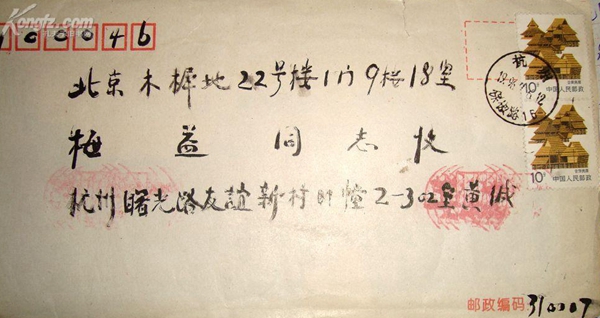 Kongfz.com
100046
北京木樨地22号楼1门9楼18室
梅益同志收
杭州曙光路友谊新村 幢2-302室黄诚
杭州
12
10分
中国人民邮政
10分
中国人民邮政
邮政编码 310007